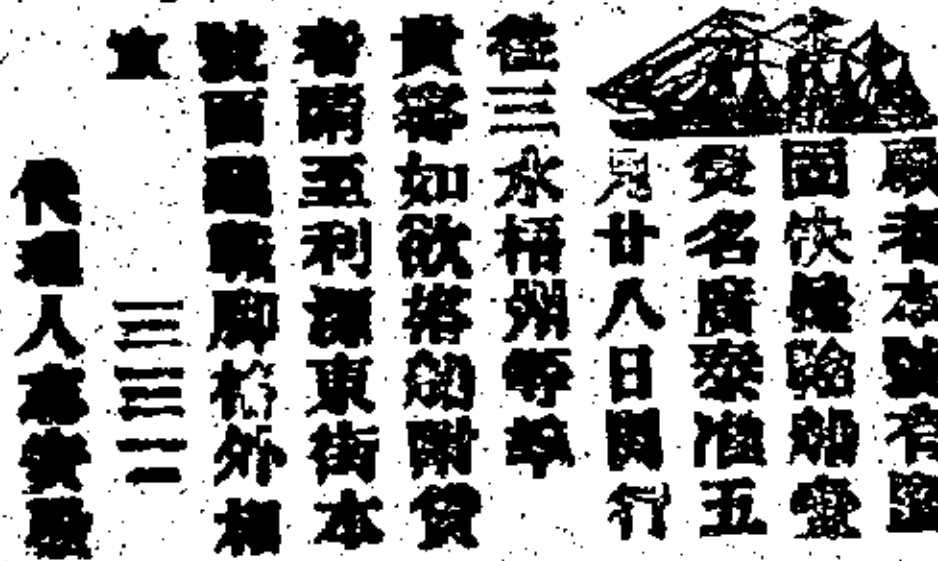 啟者本號有
固快輪船壹
隻名廣泰准五
月廿八日開行
往三水梧州等埠
貴客如欲搭船附貨
者請至利源東街本
號面議載脚格外相
宜
三三二
代理人